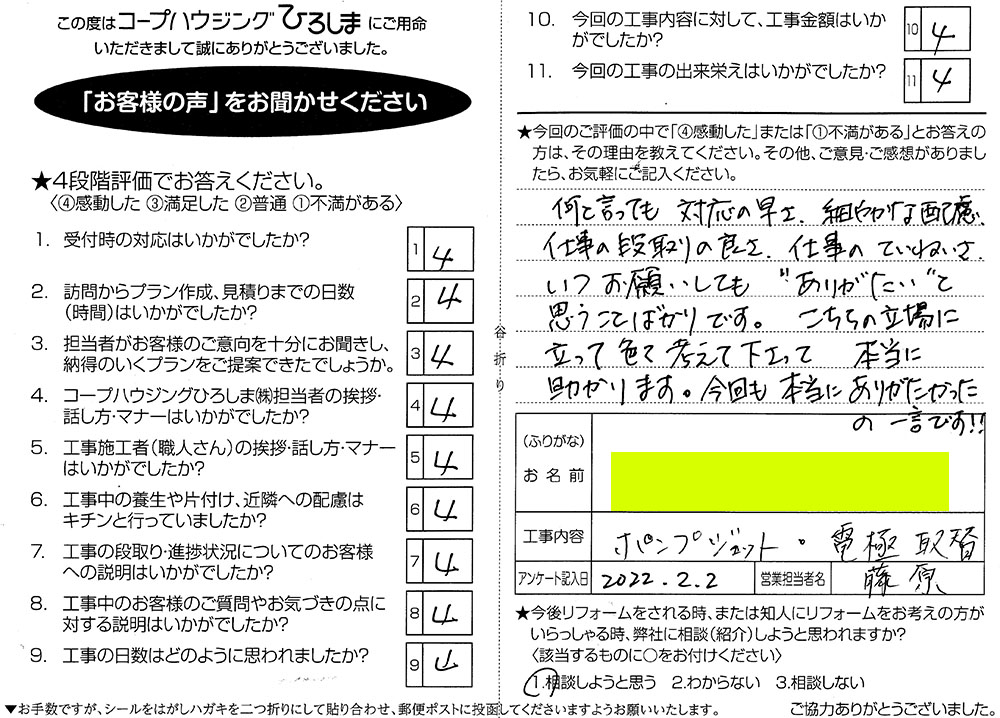 この度はコープハウジングひろしまにご用命
いただきまして誠にありがとうございました。
「お客様の声」をお聞かせください
★4段階評価でお答えください。
〈④感動した ③満足した ②普通 ①不満がある〉
1. 受付時の対応はいかがでしたか?
1 4
2. 訪問からプラン作成、見積りまでの日数
(時間)はいかがでしたか?
2 4
3. 担当者がお客様のご意向を十分にお聞きし、
納得のいくプランをご提案できたでしょうか。
3 4
4. コープハウジングひろしま㈱担当者の挨拶・
話し方・マナーはいかがでしたか?
4 4
5. 工事施工者(職人さん)の挨拶・話し方・マナー
はいかがでしたか?
5 4
6. 工事中の養生や片付け、近隣への配慮は
キチンと行っていましたか?
6 4
7. 工事の段取り・進捗状況についてのお客様
への説明はいかがでしたか?
7 4
8. 工事中のお客様のご質問やお気づきの点に
対する説明はいかがでしたか?
8 4
9. 工事の日数はどのように思われましたか?
9 4
谷折り
10. 今回の工事内容に対して、工事金額はいか
がでしたか?
10 4
11. 今回の工事の出来栄えはいかがでしたか?
11 4
★今回のご評価の中で「④感動した」または「①不満がある」とお答えの
方は、その理由を教えてください。その他、ご意見・ご感想がありまし
たら、お気軽にご記入ください。
何と言っても 対応の早さ、細やかな配慮、
仕事の段取りの良さ、仕事の ていねいさ、
いつ お願いしても "ありがたい"と
思うことばかりです。 こちらの立場に
立って色々考えて下さって 本当に
助かります。今回も 本当に ありがたかった
の 一言です!!
(ふりがな)
お名前
工事内容 ポンプジェット・電極取替
アンケート記入日 2022.2.2 営業担当者名 藤原
★今後リフォームをされる時、または知人にリフォームをお考えの方が
いらっしゃる時、弊社に相談(紹介)しようと思われますか?
〈該当するものに○をお付けください〉
1.相談しようと思う 2.わからない 3.相談しない
▼お手数ですが、シールをはがしハガキを二つ折りにして貼り合わせ、郵便ポストに投函してくださいますようお願いいたします。
ご協力ありがとうございました。